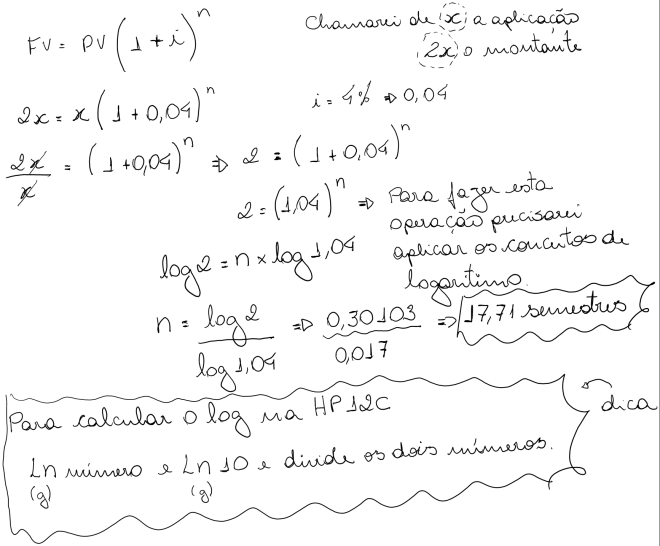 FV = PV (1 + i)^n
Chamarei de x a aplicação
2x o montante
2x = x (1 + 0,04)^n
i = 4% => 0,04
2x/x = (1 + 0,04)^n => 2 = (1 + 0,04)^n
2 = (1,04)^n => Para fazer esta
operação precisarei
aplicar os conceitos de
logaritimo.
log 2 = n x log 1,04
n = log 2 / log 1,04 => 0,30103 / 0,017 => 17,71 semestres
Para calcular o log na HP12C
dica
Ln número e Ln 10 e divide os dois números.
(g) (g)